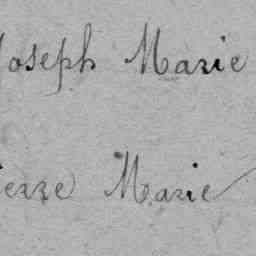 Joseph Marie
ierre Marie